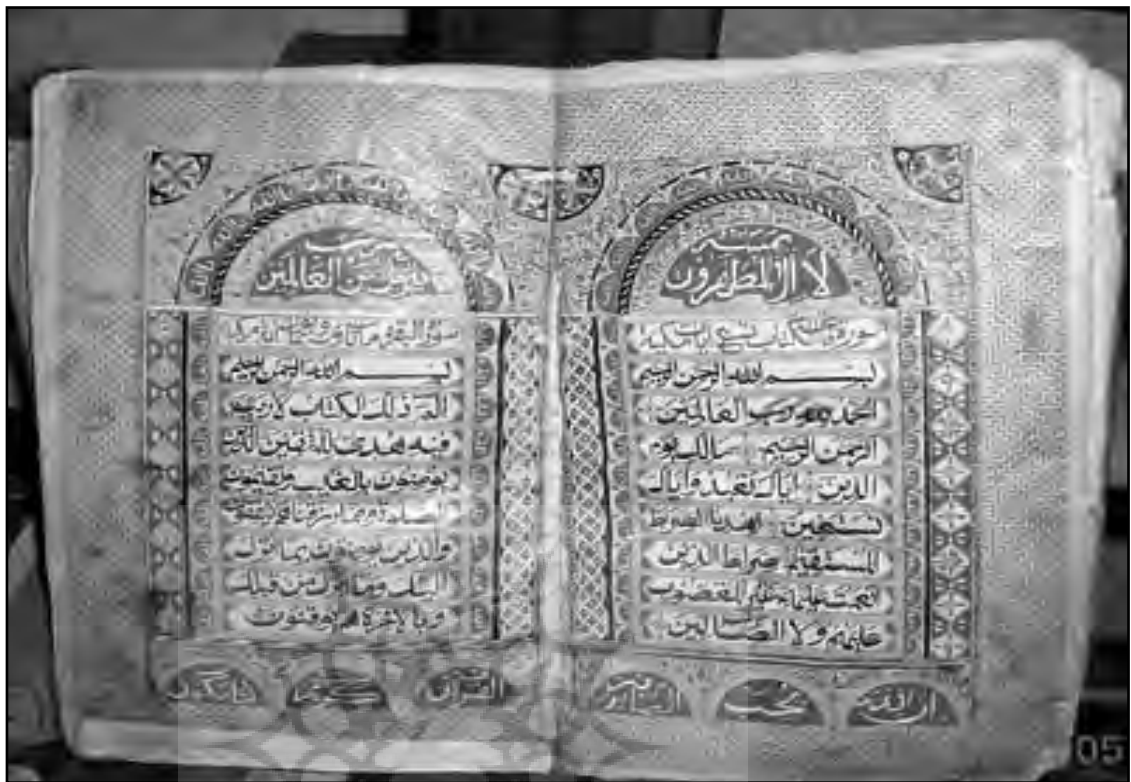 لا يمسه الا المطهرون
سورة الكتاب سبع ايات مكية
بسم الله الرحمن الرحيم
الحمد لله رب العالمين
الرحمن الرحيم مالك يوم
الدين اياك نعبد واياك
نستعين اهدنا الصراط
المستقيم صراط الذين
انعمت عليهم غير المغضوب
عليهم ولا الضالين
ان الله يحب
تنزيل من رب العالمين
سورة البقرة
بسم الله الرحمن الرحيم
الم ذلك الكتاب لا ريب
فيه هدى للمتقين الذين
يؤمنون بالغيب ويقيمون
الصلوة ومما رزقناهم ينفقون
والذين يؤمنون بما انزل
اليك وما انزل من قبلك
وبالاخرة هم يوقنون
القران
05